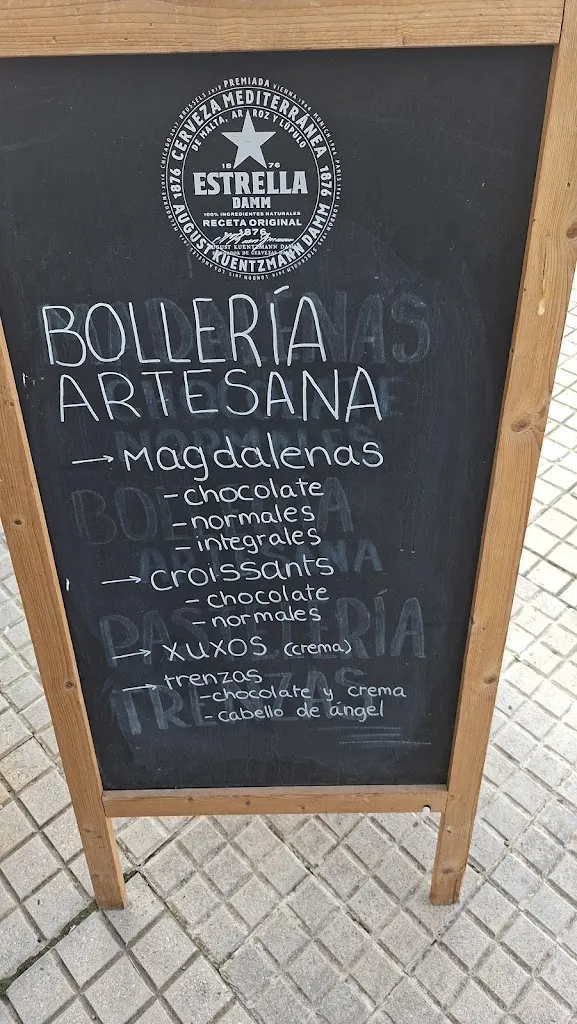 PREMIADA
CERVEZA MEDITERRÁNEA
DE MALTA, ARROZ Y LÚPULO
1876 1876
ESTRELLA
DAMM
100% INGREDIENTES NATURALES
RECETA ORIGINAL
1876
AUGUST KUENTZMANN DAMM
BOLLERÍA
ARTESANA
→ Magdalenas
- chocolate
- normales
- integrales
→ croissants
- chocolate
- normales
→ xuxos (crema)
→ trenzas
- chocolate y crema
- cabello de ángel